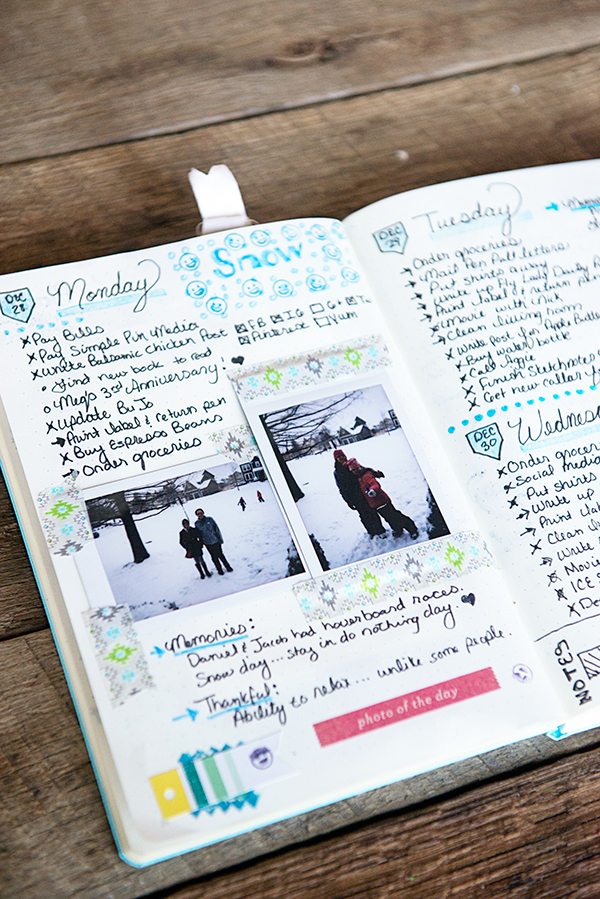 DEC 28
Monday
Snow
x Pay Bills
x Pay Simple Pin Media
x Write Balsamic Chicken Post ☒ FB ☒ IG ☐ G+ ☒ Tw
☒ Pinterest ☐ Yum
o Find new book to read
o Meg's 3rd Anniversary! ♥
x Update BuJo
→ Print label & return pen
x Buy Espresso Beans
→ Order groceries
→ Memories:
Daniel & Jacob had hoverboard races.
Snow day... stay in do nothing day. ♥
→ Thankful:
Ability to relax... unlike some people.
photo of the day
DEC 29
Tuesday
→ Memories
→ Order groceries
Mail Pen Pal letters
Put shirts away
Write up my Lady Daily
→ Print label & return
Movie with Nick
→ Clean living room
x Write Post for Apple Butter
x Buy water bottle
x Call Apple
x Finish Sketchnote
x Get new caller
DEC 30
Wednes
x Order groceries
x Social media
→ Put shirts
→ Write up
→ Print label
x Clean living
→ Write
x Movie
x ICE S
x Do
NOTES